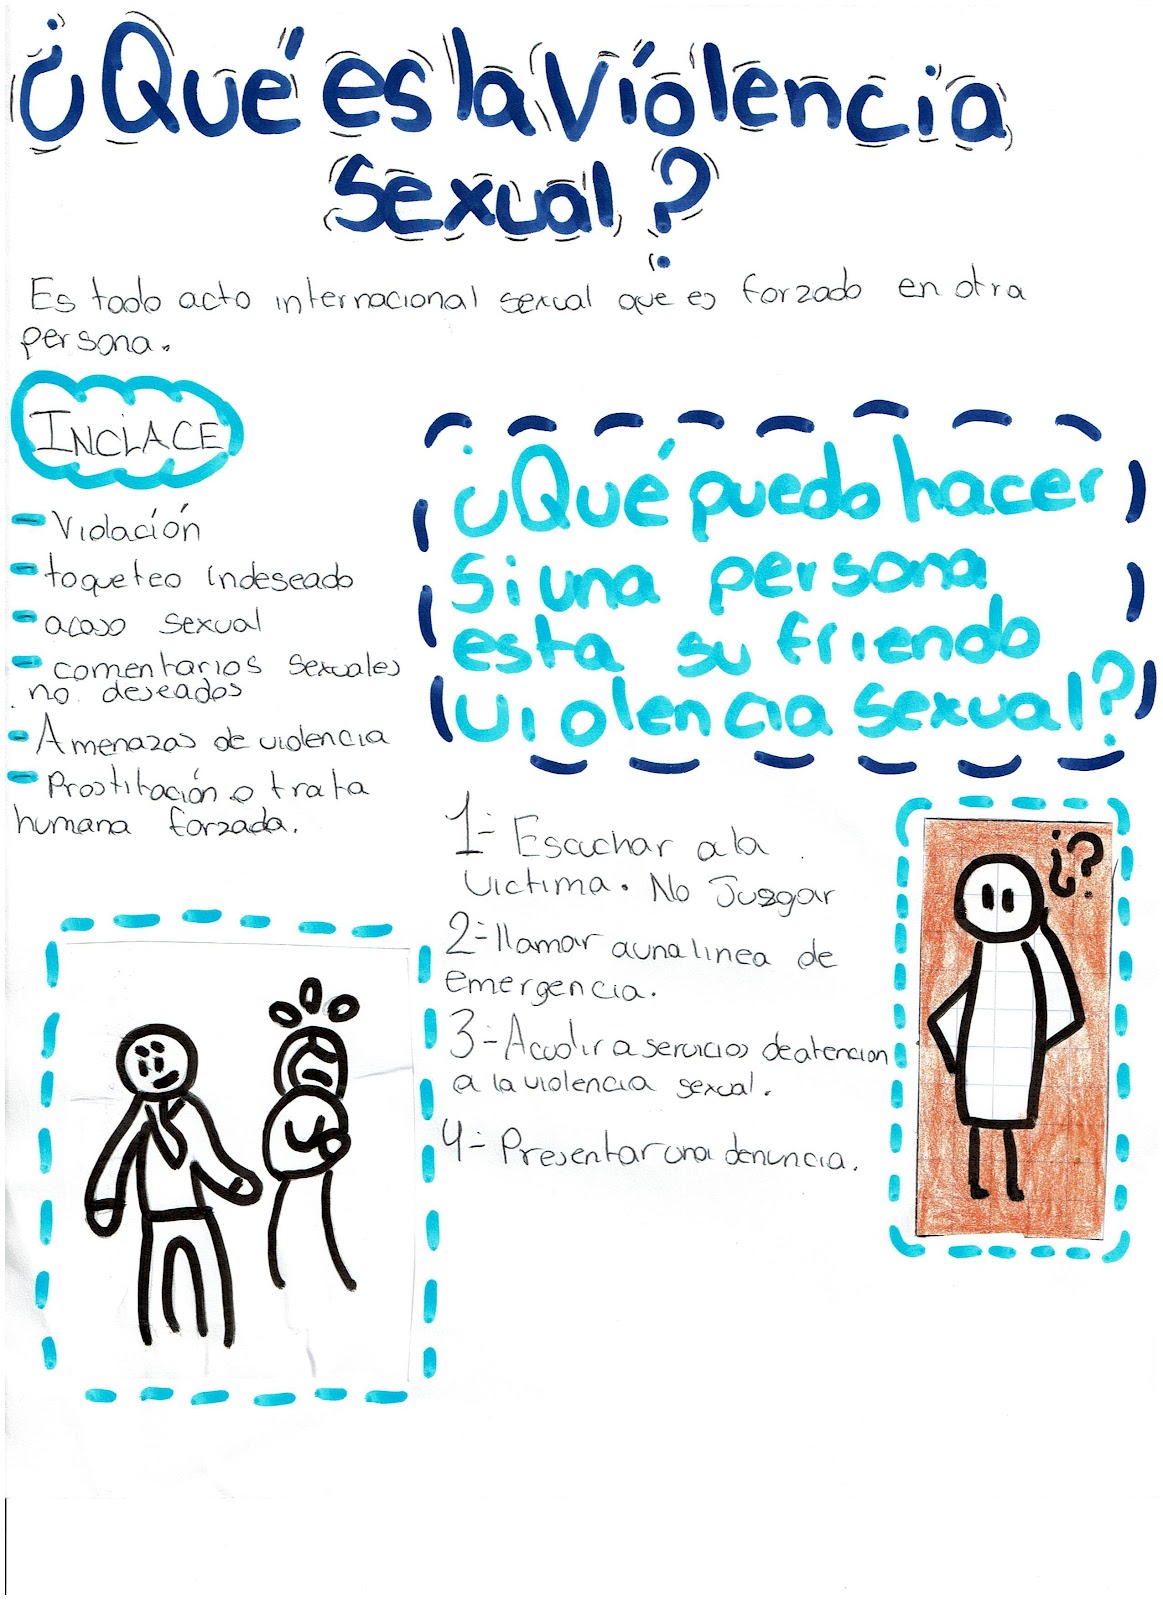 ¿Qué es la Violencia
sexual?
Es todo acto internacional sexual que es forzado en otra
persona.
INCLACE
- Violación
- toqueteo indeseado
- acaso sexual
- comentarios sexuales
no deseados
- Amenazas de violencia
- Prostitación o trata
humana forzada.
¿Qué puedo hacer
si una persona
esta sufriendo
violencia sexual?
1- Escuchar a la
victima. No Juzgar
2- llamar a una linea de
emergencia.
3- Acudir a servicios de atencion
a la violencia sexual.
4- Presentar una denuncia.
¿?